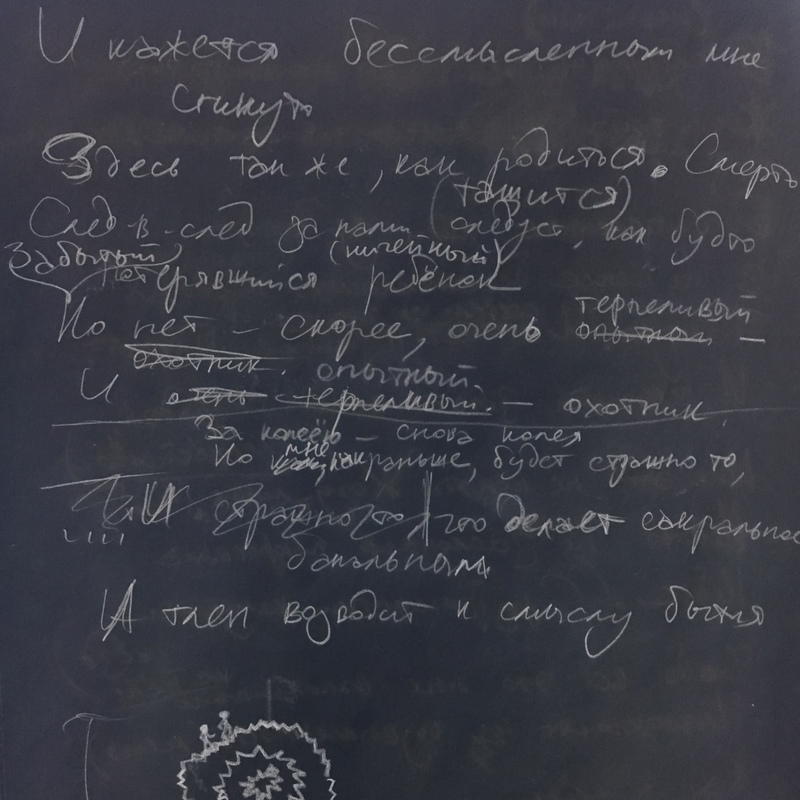 И кажется бессмысленным мне
сгинуть
Здесь так же, как родиться. Смерть
(тащится)
След-в-след за нами следует, как будто
Забытый (ничейный)
потерявшийся ребёнок
терпеливый
Но нет – скорее, очень опытный –
охотник. опытный
И очень терпеливый. – охотник.
За колеёю – снова колея
Но мне, как раньше, будет страшно то,
И страшно то что делает сакральное
банальным
И тлен возводит к смыслу бытия